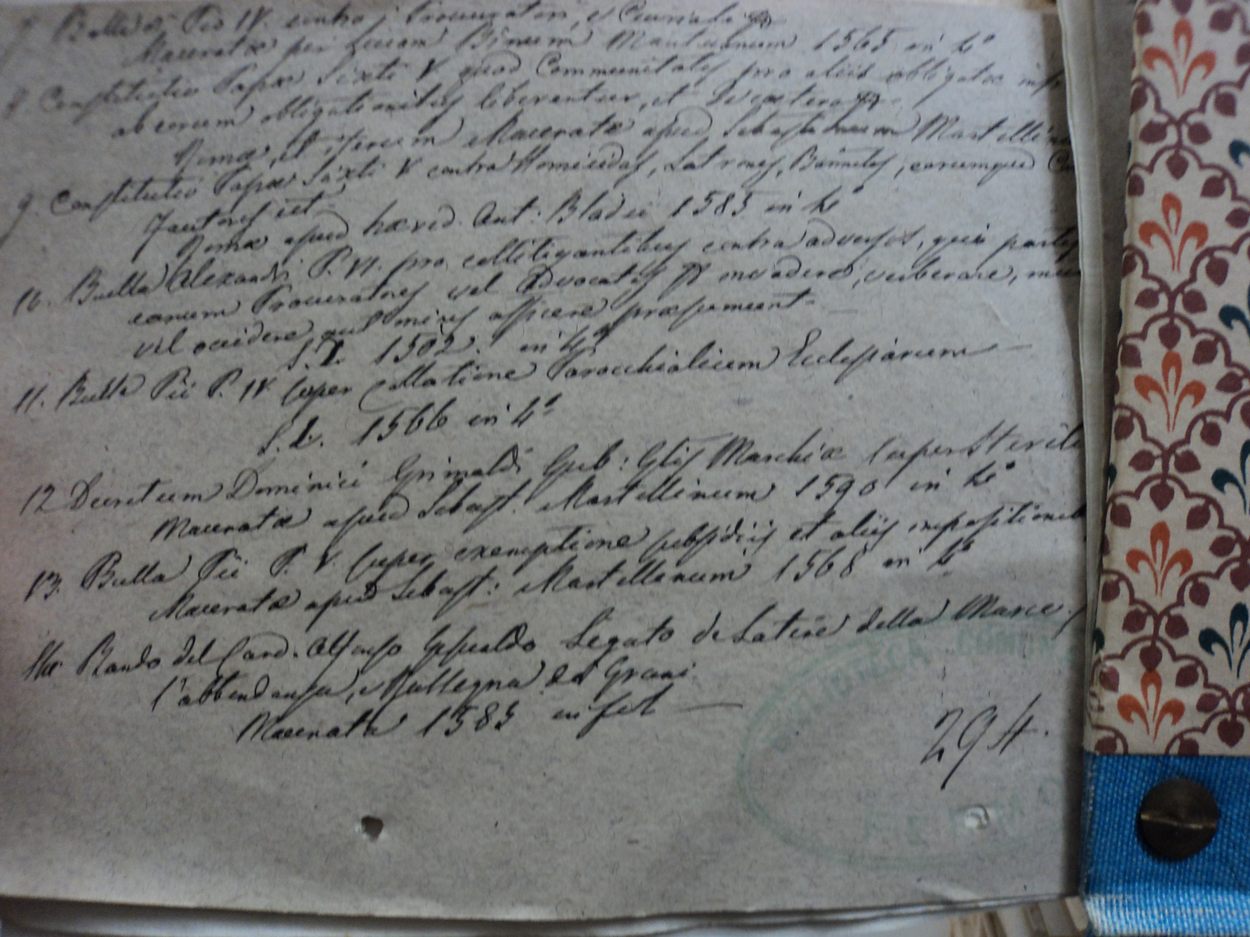 7. Bulla Pio IV. contra Procuratori, e Curiali
Maceratæ per Lucam Binum Mantuanum 1565 in 4º
8. Constitutio Papæ Sixti V. quod Communitates pro aliis obligatæ
ab eorum obligationibus liberentur, et
Romæ, et iterum Maceratæ apud Sebastianum Martellin
9. Constitutio Papæ Sixti V contra Homicidas, Latrones, Bannitos, eorumque
Fautores
Romæ apud hæred. Ant: Bladii 1585 in 4º
10. Bulla Alexandri P. VI. pro collitigantibus contra adversos, qui partes
earum Procuratores vel Advocatos invadere, verberare,
vel occidere aut minis afficere præsumunt
S.L. 1502. in 4º
11. Bulla Pii P. IV super collatione Parochialium Ecclesiarum
S.L. 1566 in 4º
12 Decretum Dominici Grimaldi Gub: Glis Marchiæ super
Maceratæ apud Sebast. Martellinum 1590 in 4º
13. Bulla Pii P. V super exemptione subsidiis et aliis
Maceratæ apud Sebast: Martellinum 1568 in 4º
14. Bando del Card. Alfonso Gesualdo Legato de Latere della Marca
l'abbondanza, e Rassegna de Grani
Macerata 1585 in fol
294.
BIBLIOTECA COMUN